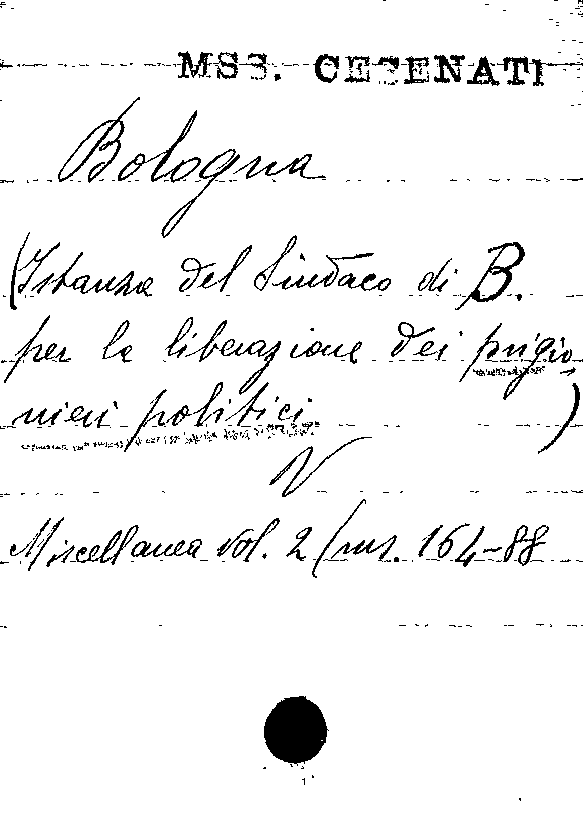 MSS. CESENATI
Bologna
(Istanza del Sindaco di B.
per la liberazione dei prigio
nieri politici)
V
Miscellanea vol. 2 (ms. 164-88